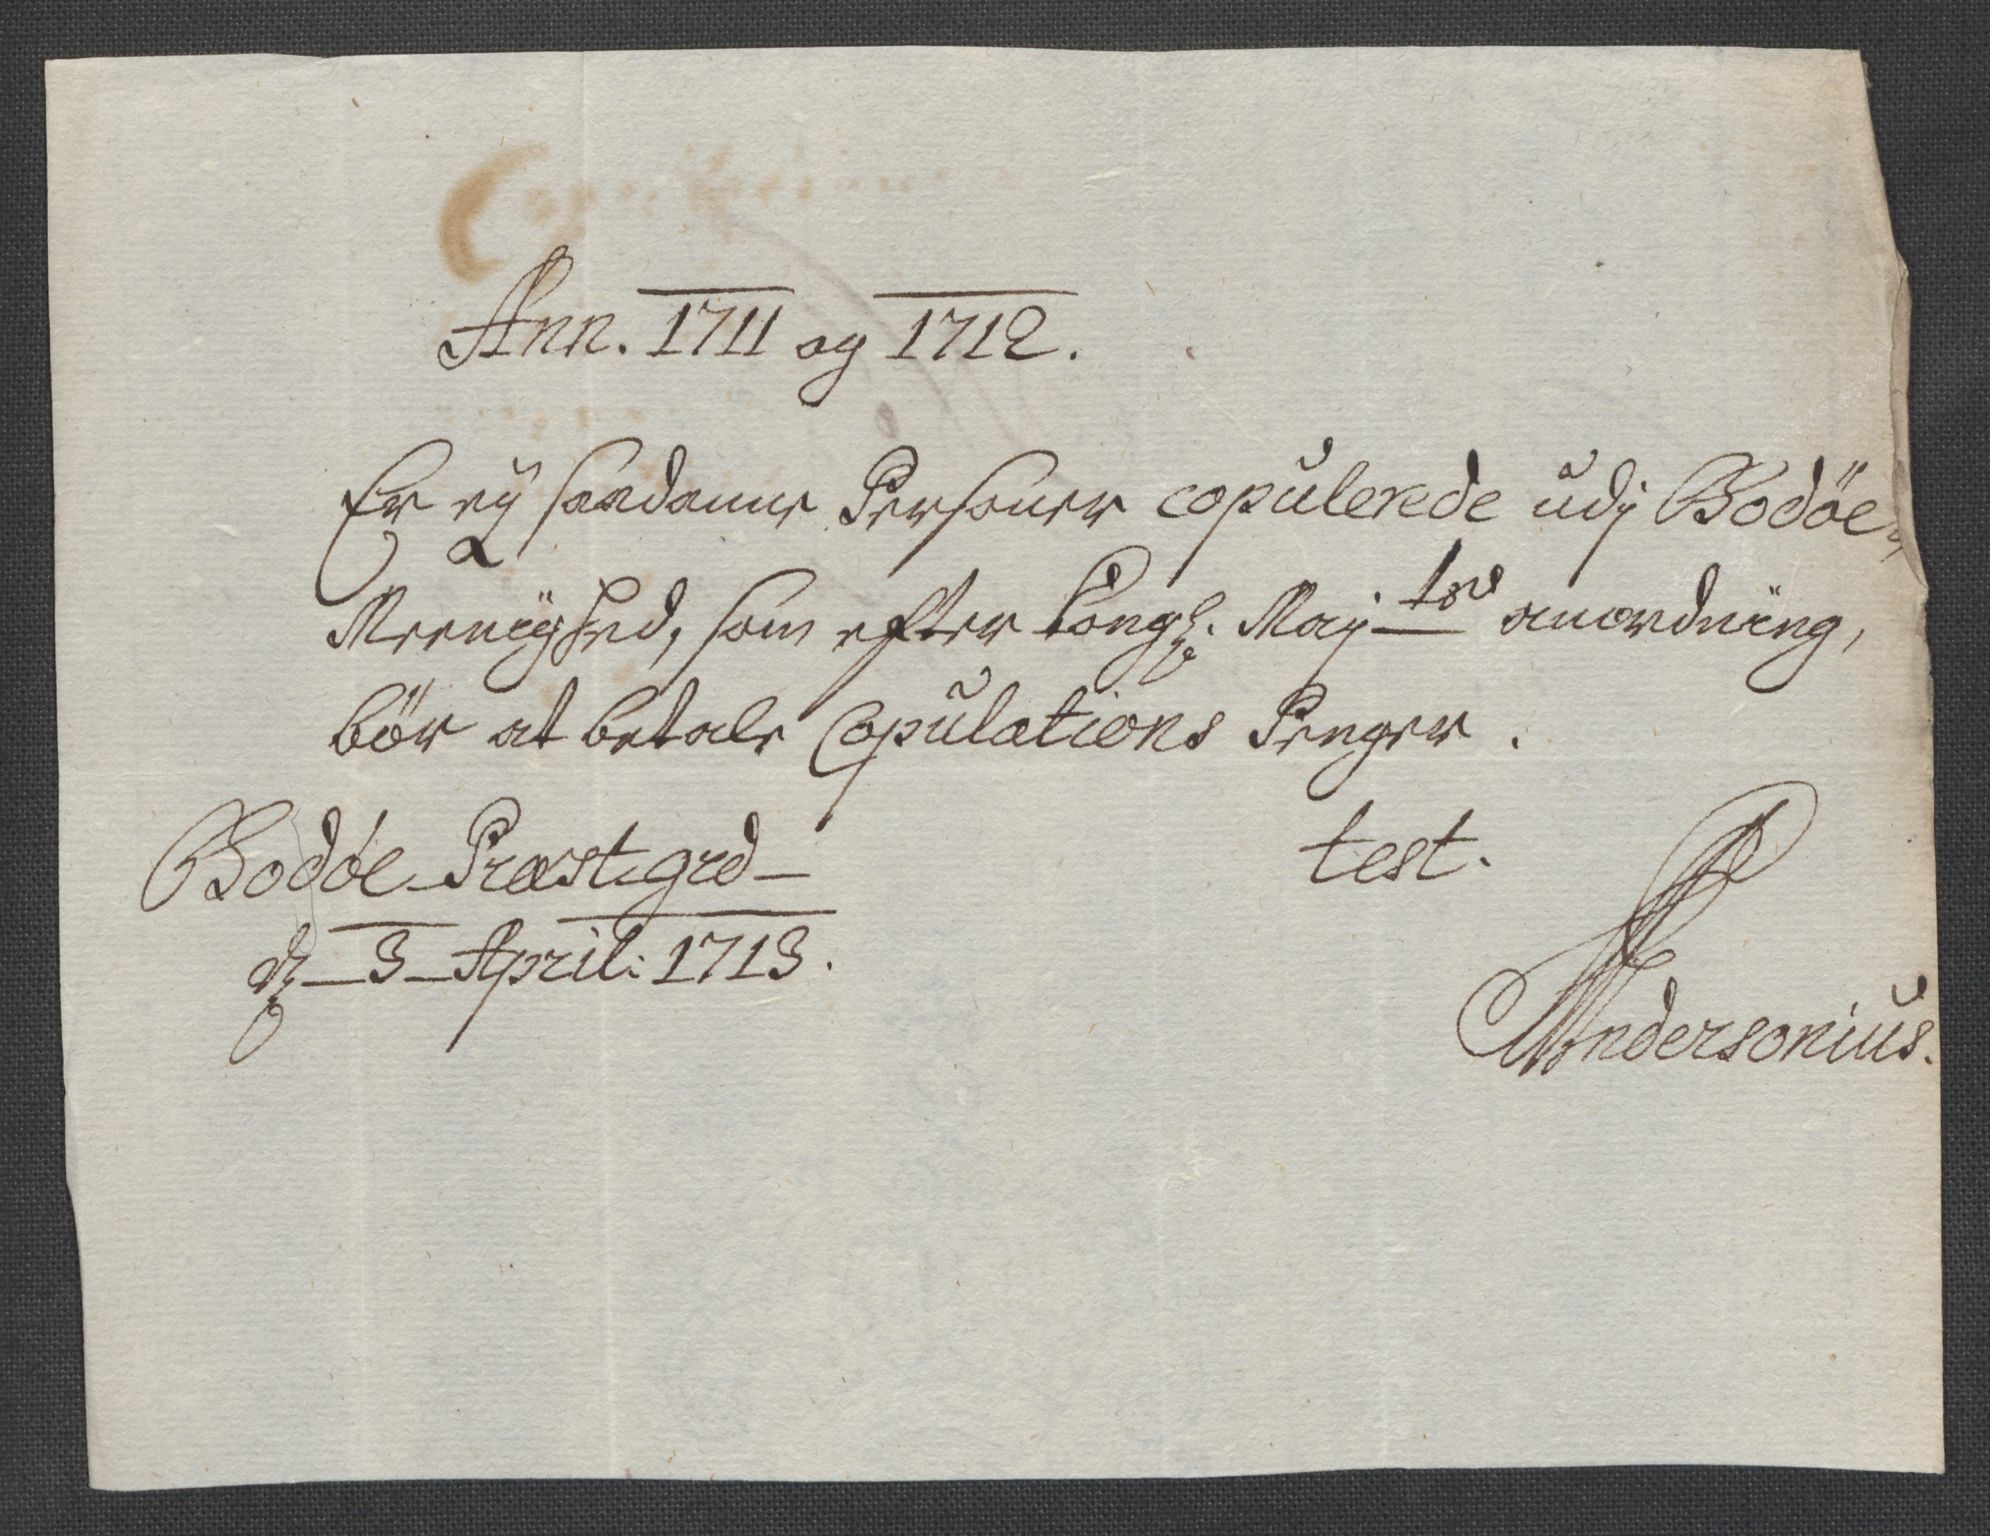 Ann. 1711 og 1712.
Er ey saadanne Personer copulerede udj Bodøe
Meenighed, som efter Kongl. Maytz anordning,
bör at betale Copulations Penger.
Bodøe Præstegrd test.
d 3 April: 1713.
Andersonius.